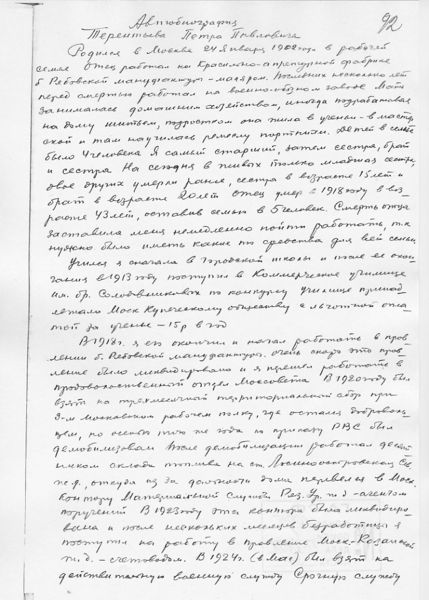 92
Автобиография
Терентьева Петра Павловича
Родился в Москве 24 января 1902 года в рабочей
семье Отец работал на Красильно-аппретурной фабрике
б Ребовской мануфактур - маляром. Последних несколько лет
перед смертью работал на военно-обозном заводе Мать
занималась домашним хозяйством, иногда подрабатывая
на дому шитьем, подростком она жила в ученьи - в мастер
ской и там научилась ремеслу портнихи. Детей в семье
было 4 человека Я самый старший, затем сестра, брат
и сестра На сегодня в живых только младшая сестра
двое других умерли ранее, сестра в возрасте 15 лет и
брат в возрасте 20 лет отец умер в 1918 году в воз
расте 43 лет, оставив семью в 5 человек. Смерть отца
заставила меня немедленно пойти работать, т.к
нужно было иметь какие то средства для всей семьи
Учился я сначала в городской школе и после ее окон
чания в 1913 году поступил в Коммерческое училище
им. бр. Солодовниковых по конкурсу Училище принад
лежало Моск Купеческому обществу с льготной пла
той за ученье - 15 р в год
В 1918 г. я его окончил и начал работать в прав
лении б. Ребовской мануфактур. очень скоро это прав
ление было ликвидировано и я перешел работать в
продовольственный отдел Моссовета В 1920 году был
взят на трехмесячный территориальный сбор при
3-м Московском рабочем полку, где остался доброволь
цем, но осенью того же года по приказу РВС был
демобилизован После демобилизации работал десят
ником склада топлива на ст. Лосиноостровская Св.
ж.д., откуда из за дальности дома перевелся в Моск
Контору Материальной Службы Ряз. Ур. ж.д - агентом
поручений В 1923 году эта контора была ликвидиро
вана и после нескольких месяцев безработицы я
поступил на работу в правление Моск-Казанской
ж.д. - счетоводом. В 1924 г. (в мае) был взят на
действительную военную службу Срочную службу